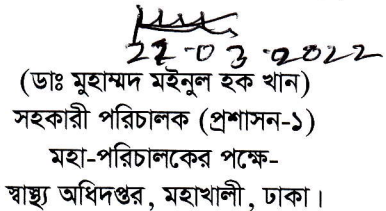 22-03-2022
(ডাঃ মুহাম্মদ মইনুল হক খান)
সহকারী পরিচালক (প্রশাসন-১)
মহা-পরিচালকের পক্ষে-
স্বাস্থ্য অধিদপ্তর, মহাখালী, ঢাকা।